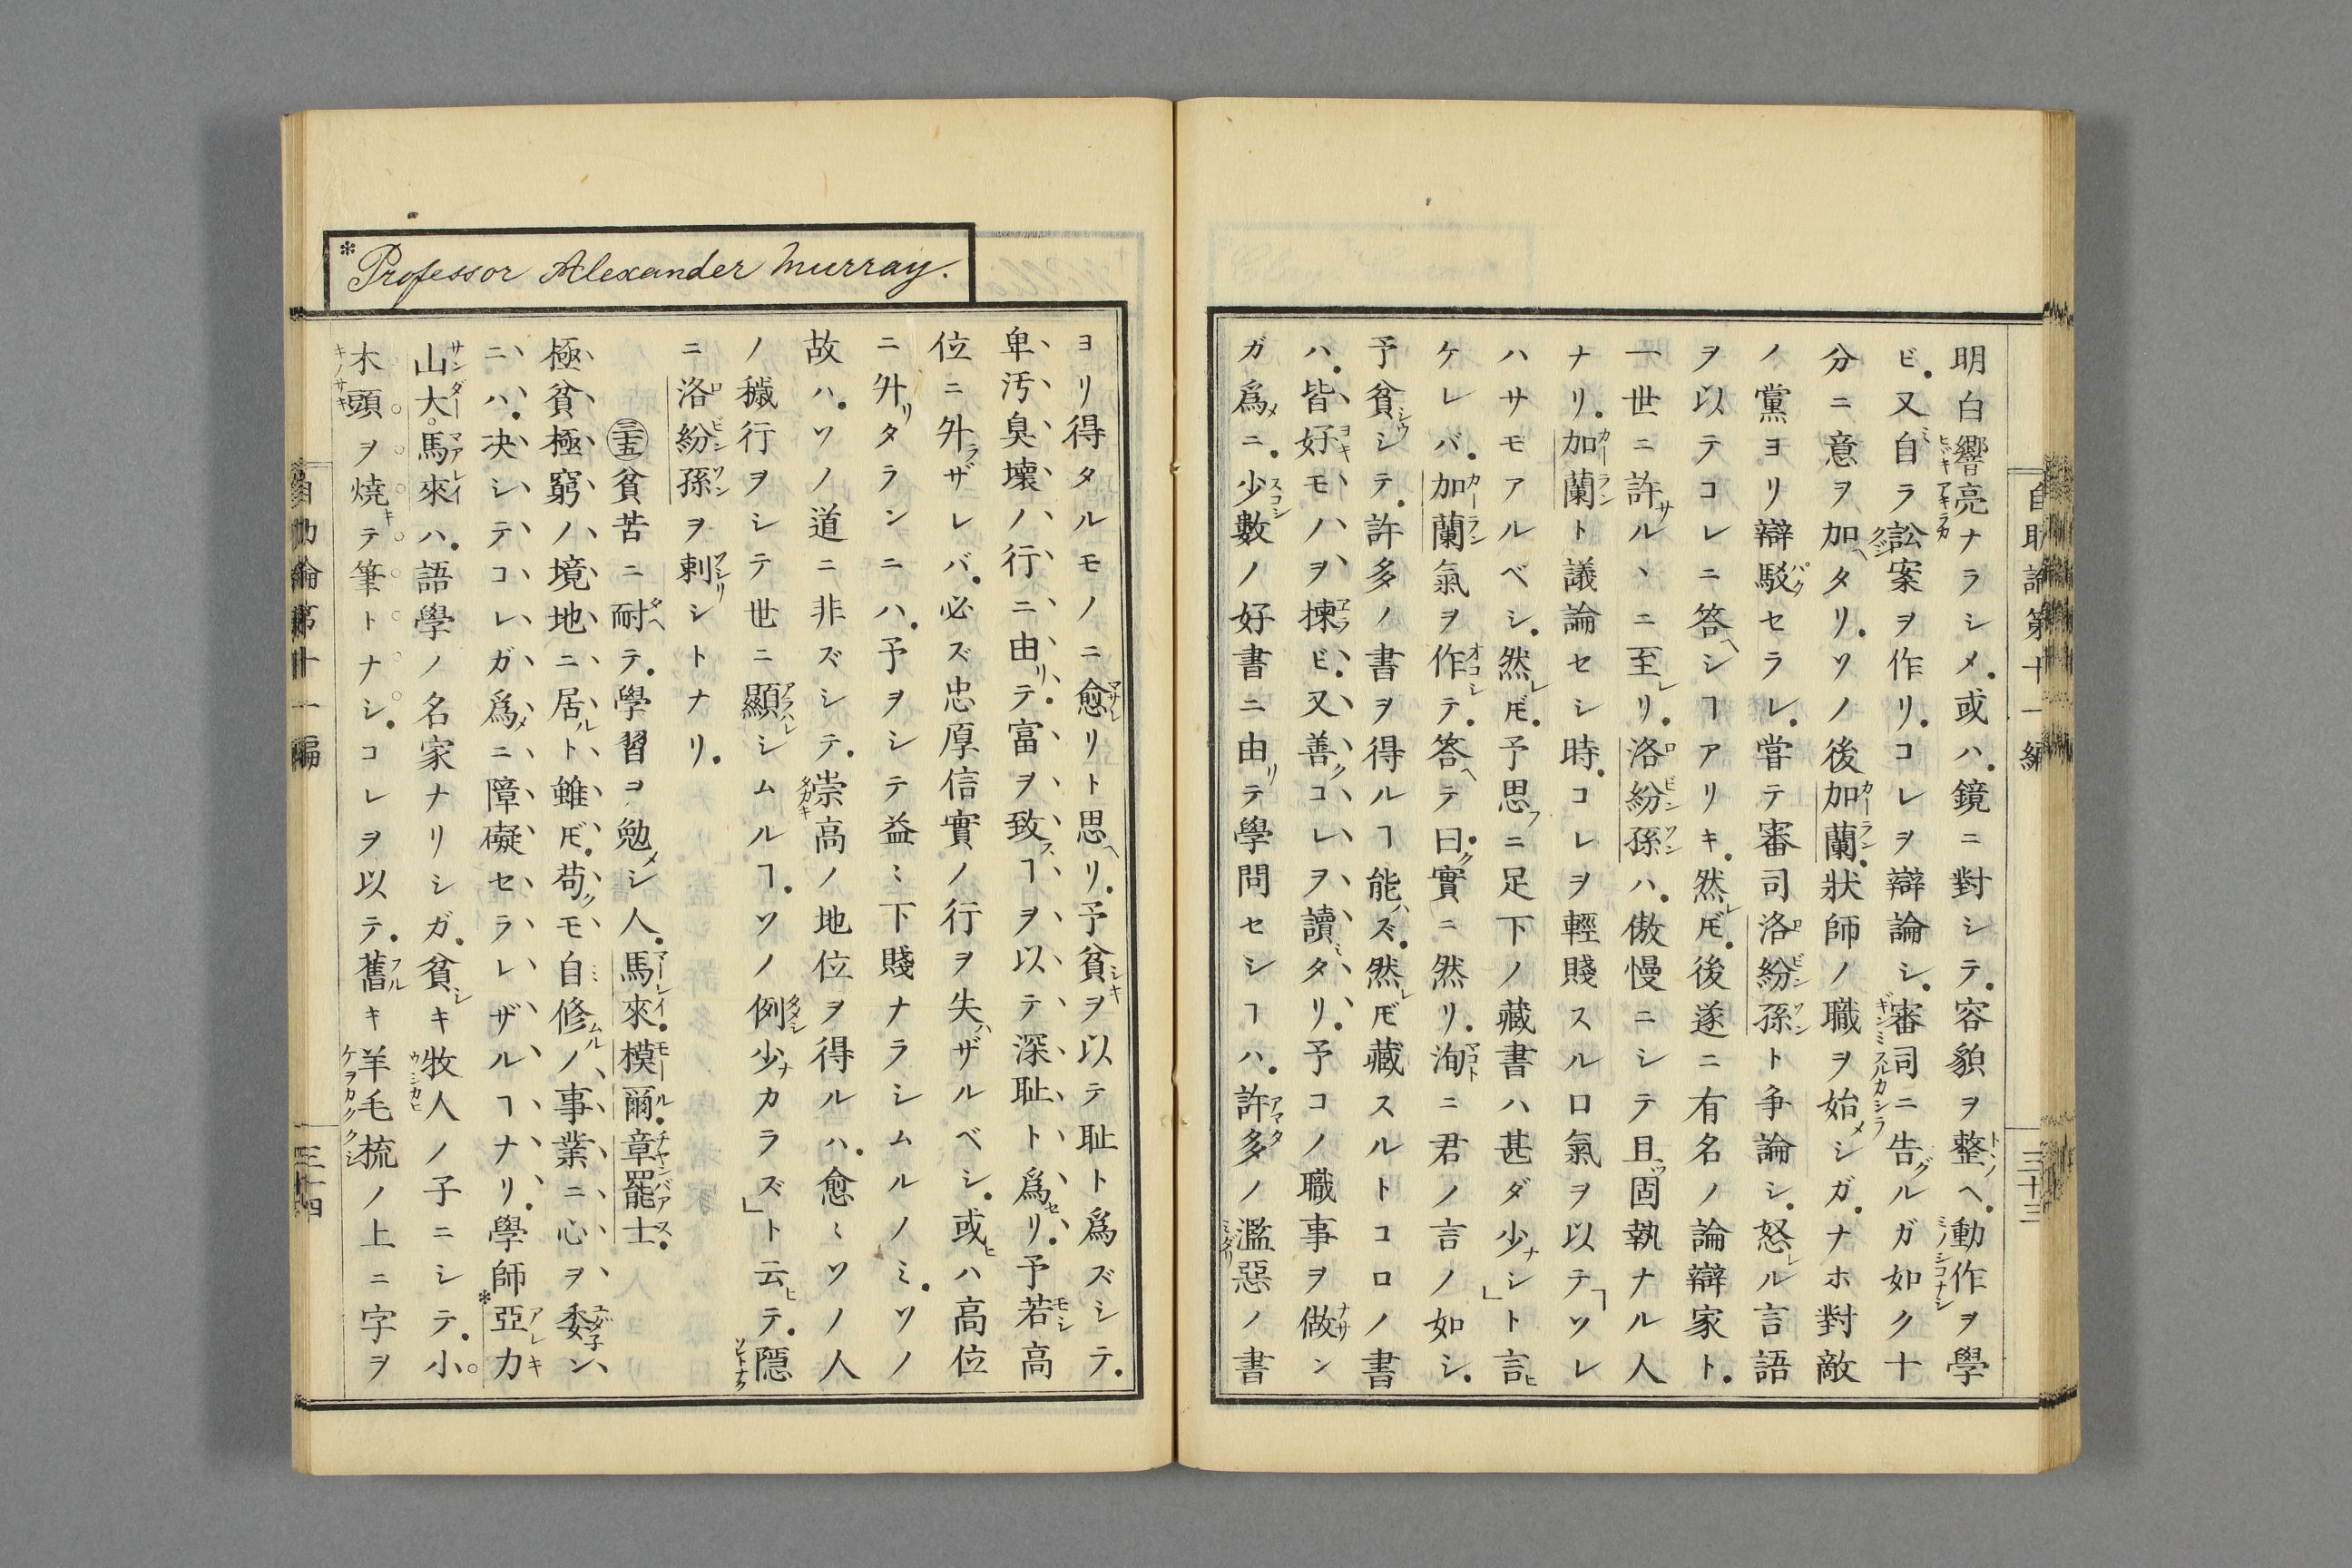 自助論第十一編
三十三
明白響亮ナラシメ．或ハ．鏡ニ對シテ．容貌ヲ整ヘ．動作ヲ學
ビ．又自ラ訟案ヲ作リ．コレヲ辯論シ．審司ニ告グルガ如ク十
分ニ意ヲ加ヘタリ．ソノ後加蘭．狀師ノ職ヲ始メシガ．ナホ對敵
ノ黨ヨリ辯駁セラレ．嘗テ審司洛紛孫ト争論シ．怒レル言語
ヲ以テコレニ答ヘシヿアリキ．然レ𪜈．後遂ニ有名ノ論辯家ト．
一世ニ許サルヽニ至レリ．洛紛孫ハ．傲慢ニシテ且ツ固執ナル人
ナリ．加蘭ト議論セシ時．コレヲ輕賤スル口氣ヲ以テ「ソレ
ハサモアルベシ．然レ𪜈．予思フニ足下ノ藏書ハ甚ダ少ナシ」ト言ヒ
ケレバ．加蘭氣ヲ作シテ．答ヘテ曰ク．實ニ然リ．洵ニ君ノ言ノ如シ．
予貧シウシテ．許多ノ書ヲ得ルヿ能ハズ．然レ𪜈藏スルトコロノ書
ハ．皆好モノヲ揀ビ．又善クコレヲ讀ミタリ．予コノ職事ヲ做サン
ガ爲メニ．少數ノ好書ニ由リテ學問セシヿハ．許多ノ濫惡ノ書
*Professor Alexander Murray.
ヨリ得タルモノニ愈リト思ヘリ．予貧キヲ以テ耻ト爲ズシテ．
卑汚臭壞ノ行ニ由リテ．富ヲ致スヿヲ以テ深耻ト爲セリ．予若高
位ニ升ラザレバ．必ズ忠厚信實ノ行ヲ失ハザルベシ．或ヒハ高位
ニ升リタランニハ．予ヲシテ益〻下賤ナラシムルノミ．ソノ
故ハ．ソノ道ニ非ズシテ．崇高ノ地位ヲ得ルハ．愈〻ソノ人
ノ穢行ヲシテ世ニ顯シムルヿ．ソノ例少ナカラズ」ト云ヒテ．隱
ニ洛紛孫ヲ刺シトナリ．
㊂五貧苦ニ耐ヘテ．學習ヲ勉メシ人．馬來．模爾．章罷士．
極貧極窮ノ境地ニ居ルト雖𪜈．苟クモ自ミ修ムルノ事業ニ心ヲ委ン
ニハ．决シテコレガ爲メニ障礙セラレザルヿナリ．學師*亞力
山大。馬來ハ．語學ノ名家ナリシガ．貧シキ牧人ノ子ニシテ．小
木頭ヲ燒キテ筆トナシ．コレヲ以テ．舊キ羊毛梳ノ上ニ字ヲ
自助論第十一編
三十四